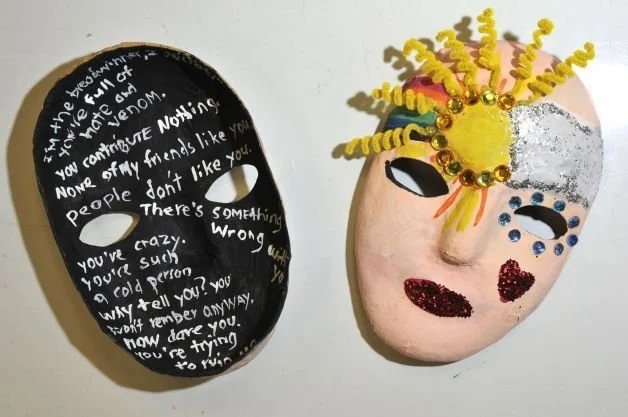 I'm the breadwinner, I
you're full of
hate and
venom.
you contribute Nothing.
None of my friends like you.
people don't like you.
There's something
wrong
with
yo
you're crazy.
you're such
a cold person
why tell you? you
won't rember anyway.
How dare you.
you're trying
to ruin